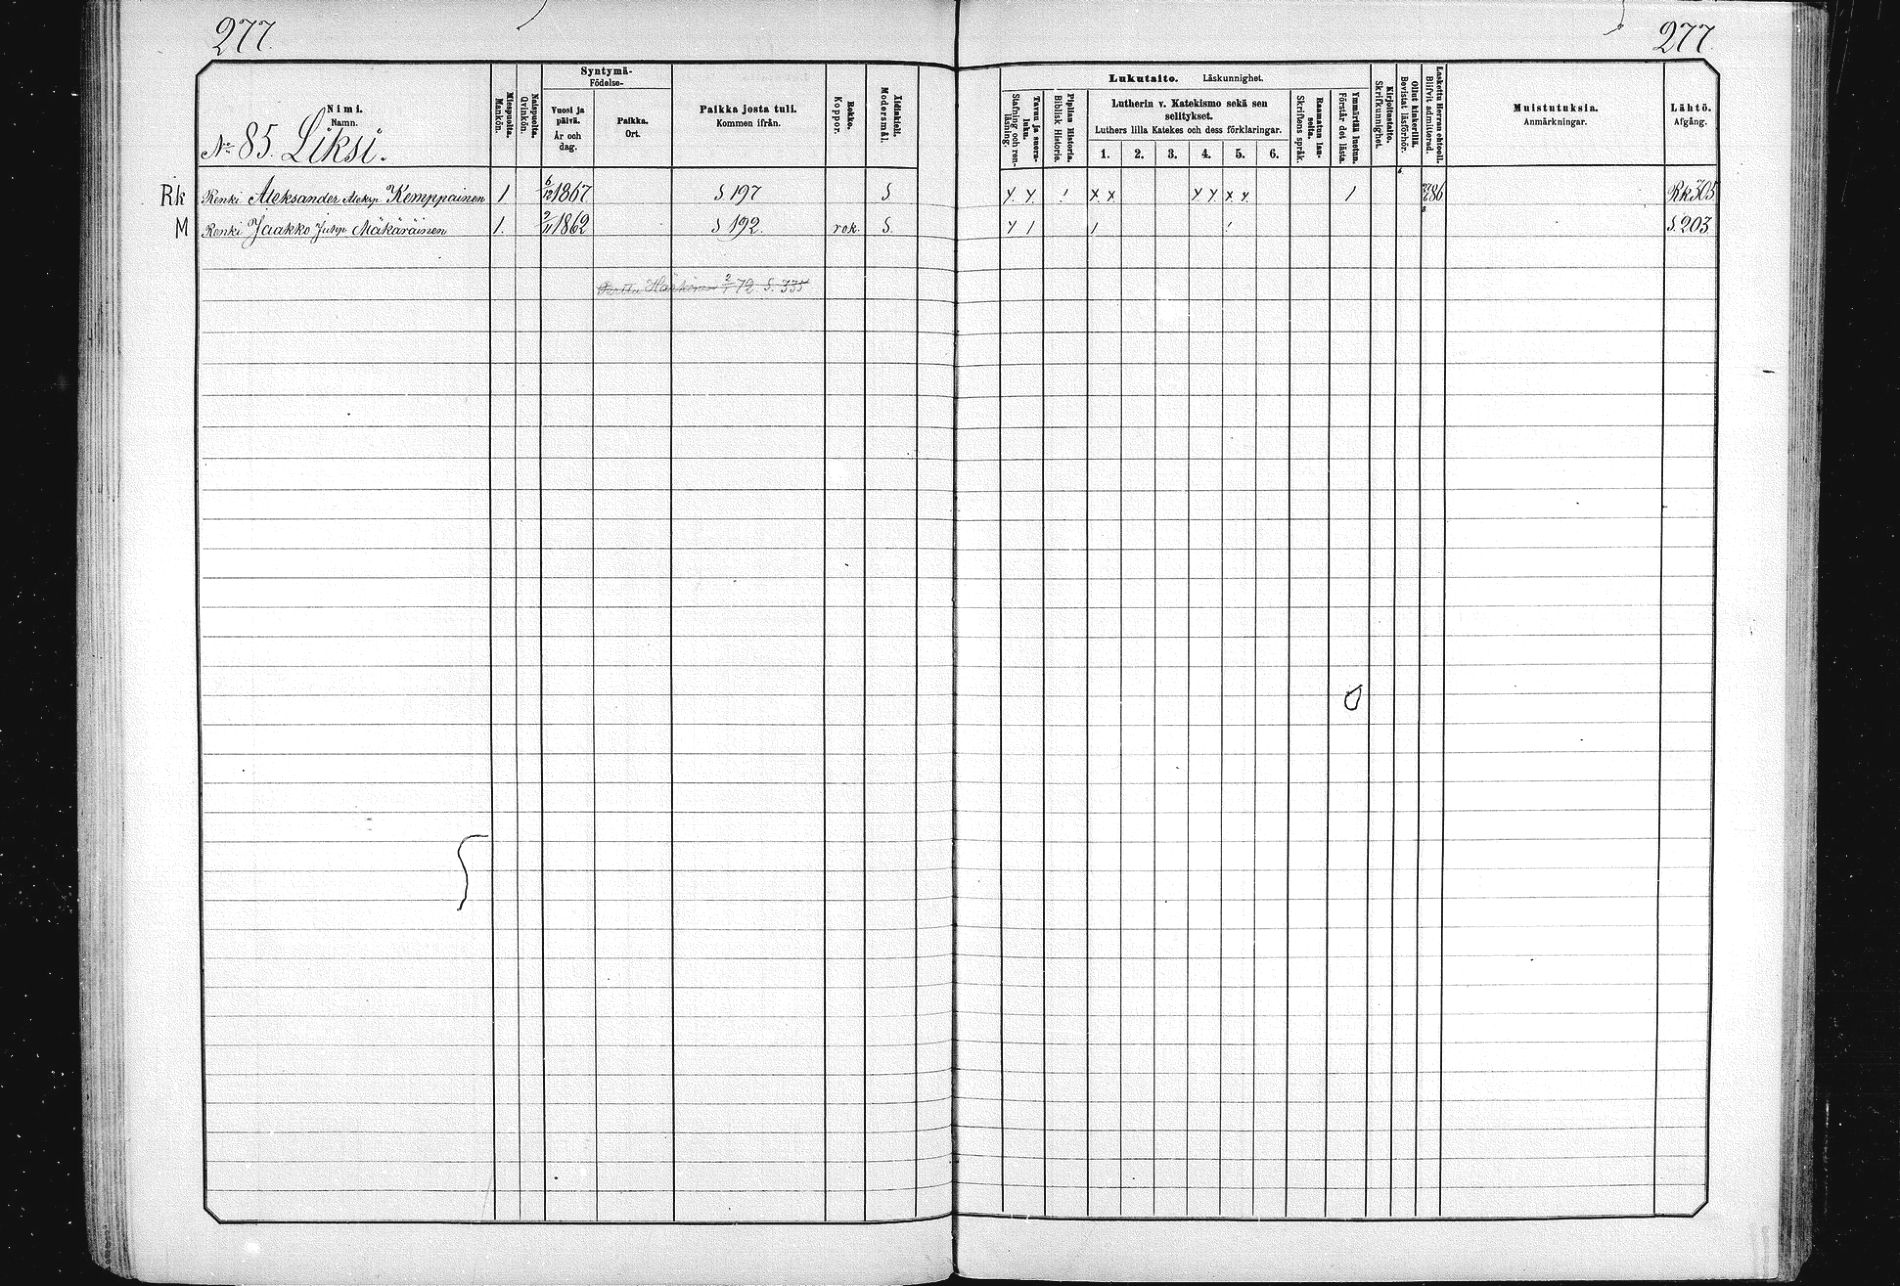 277.
277.
Nimi.
Namn.
No 85. Liksi.
Miespuolta.
Mankön.
Naispuolta.
Qvinkön.
Syntymä-
Födelse-
Vuosi ja päivä.
År och dag.
Paikka.
Ort.
Paikka josta tuli.
Kommen ifrån.
Rokko.
Koppor.
Äidinkieli.
Modersmål.
Lukutaito. Läskunnighet.
Tavuu ja suora-luku.
Stafning och ren-läsning.
Piplian Historia.
Biblisk Historia.
Lutherin v. Katekismo sekä sen selitykset.
Luthers lilla Katekes och dess förklaringar.
1. 2. 3. 4. 5. 6.
Raamatun lau-seita.
Skriftens språk.
Ymmärtää luetun.
Förstår det lästa.
Kirjoitustaito.
Skrifkunnighet.
Ollut kinkerillä.
Bevistat läsförhör.
Laskettu Herran ehtooll.
Blifvit admitterad.
Muistutuksia.
Anmärkningar.
Lähtö.
Afgång.
Rk Renki Aleksander Aleksp. Kemppainen 1 6/12 1867 S 197 S x x 1 x x x x x x 1 86 Rk 305
M Renki Jaakko Juhp. Mäkäräinen 1. 2/11 1862 S 192. rok. S. x 1 1 1 S. 203
2/1 72. S. 335